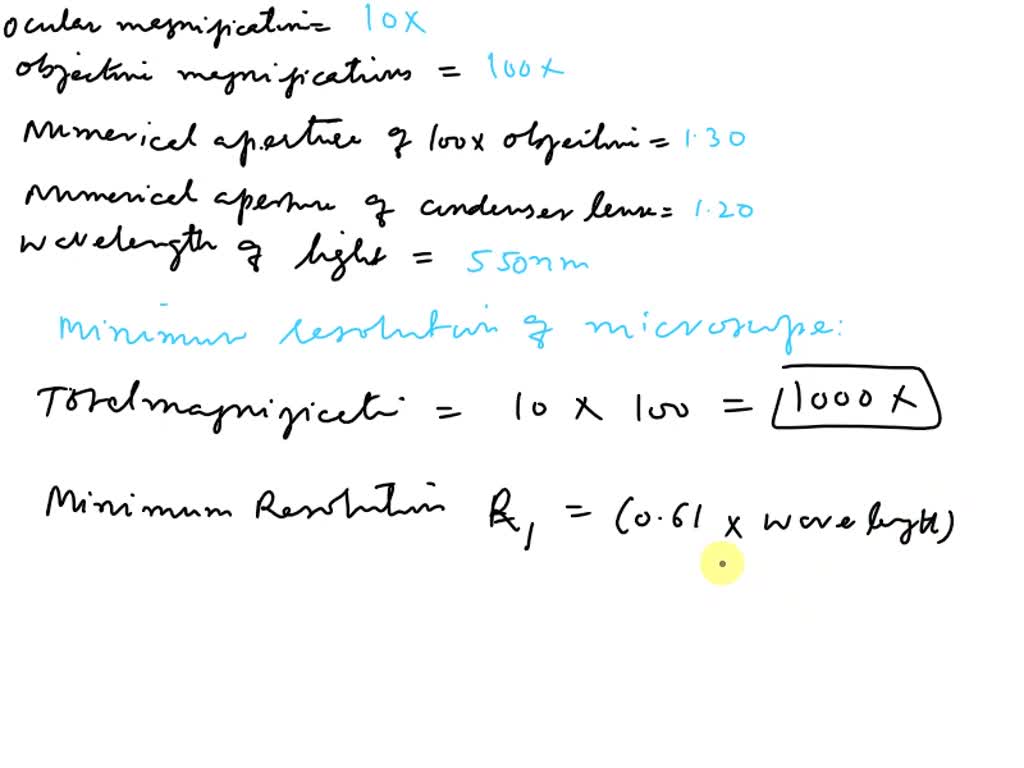 ocular magnification = 10X
objective magnifications = 100x
Numerical aperture of 100x objective = 1.30
Numerical aperture of condenser lense = 1.20
wavelength of light = 550nm
Minimum resolution of microscope:
Total magnification = 10 x 100 = 1000 x
Minimum Resolution R, = (0.61 x wavelength)